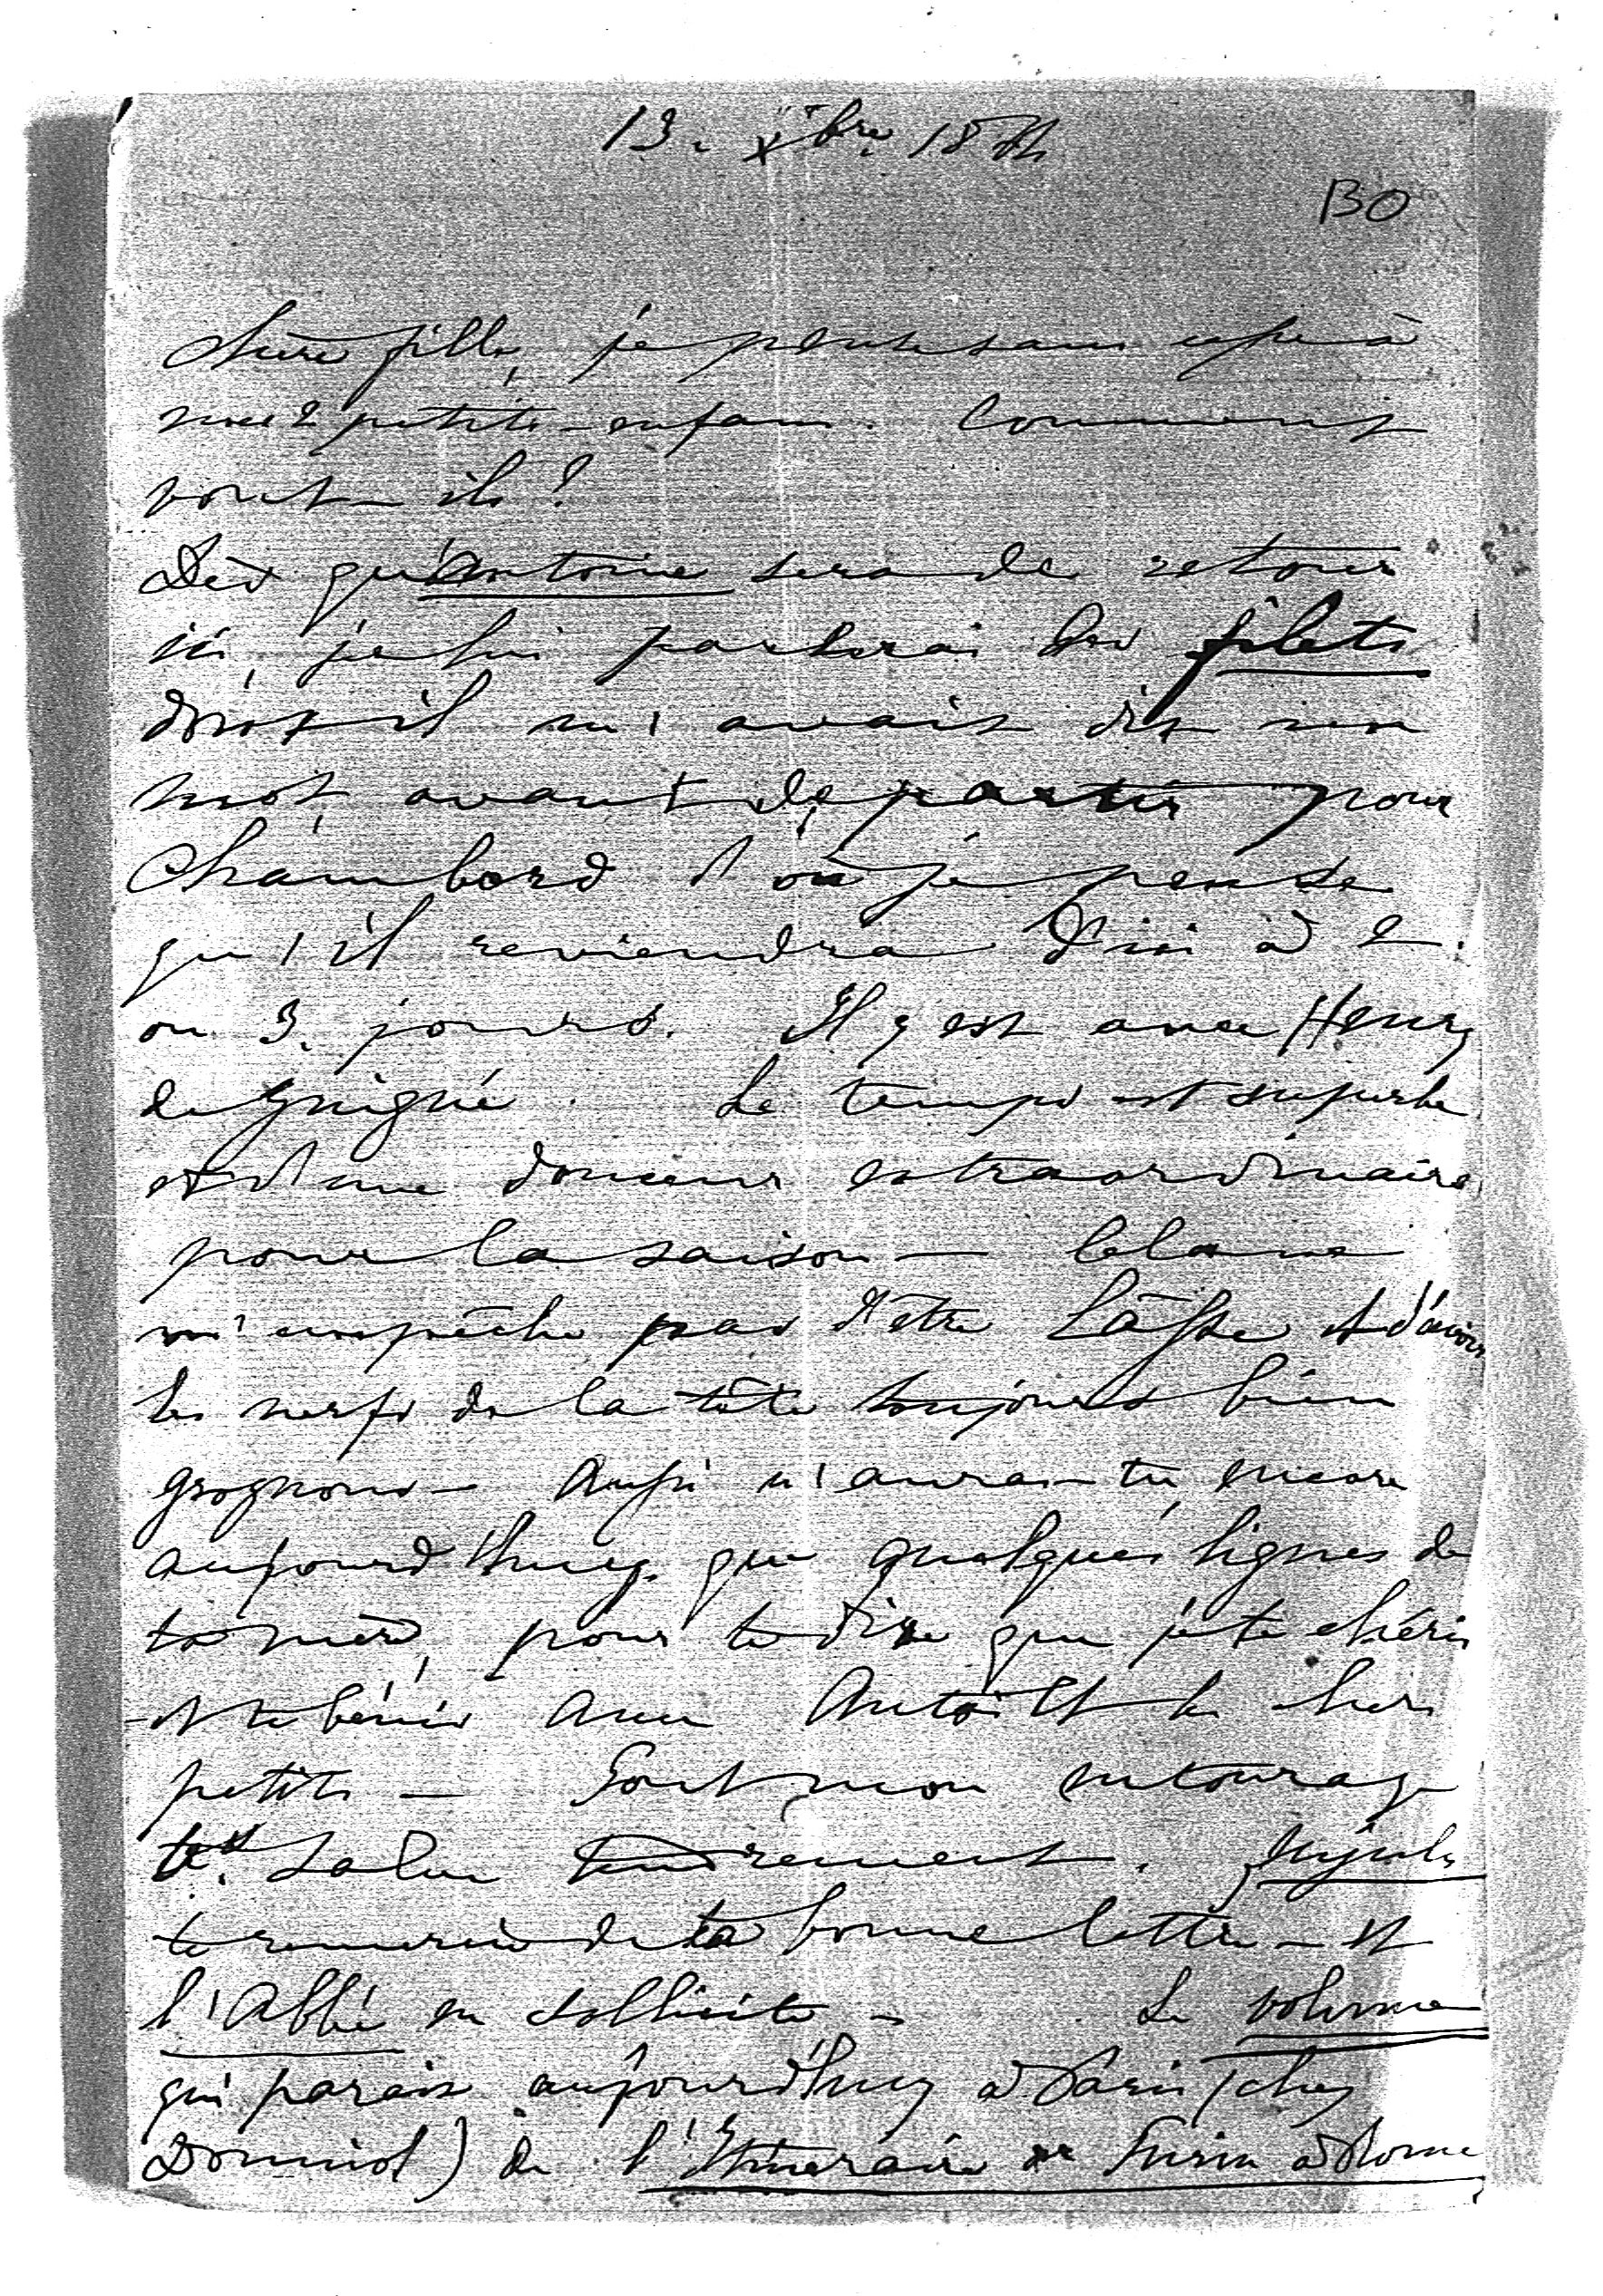 13. Xbre 18
130
Chère fille, je pense sans cesse à
mes 2 petits-enfans. Comment
vont-ils ?
Dès qu'Antoine sera de retour
ici, je lui parlerai des filets
dont il m'avait dit un
mot, avant de partir pour
Chambord d'où je pense
qu'il reviendra d'ici à 2.
ou 3. jours. Il y est avec Henry
de . Le temps est superbe
et d'une douceur extraordinaire
pour la saison - Cela ne
m'empêche pas d'être lasse et d'avoir
les nerfs de la tête toujours bien
grognons - Aussi n'auras-tu encore
aujourd'huy que quelques lignes de
ta mère, pour te dire que je te chéris
et te bénis avec Antoine et les chers
petits - Tout mon entourage
te salue tendrement.
te remercie de ta bonne lettre - et
l'Abbé en sollicite - Le volume
qui parait aujourd'huy à Paris (chez
Douniol) de l'Itinéraire de Turin à Rome